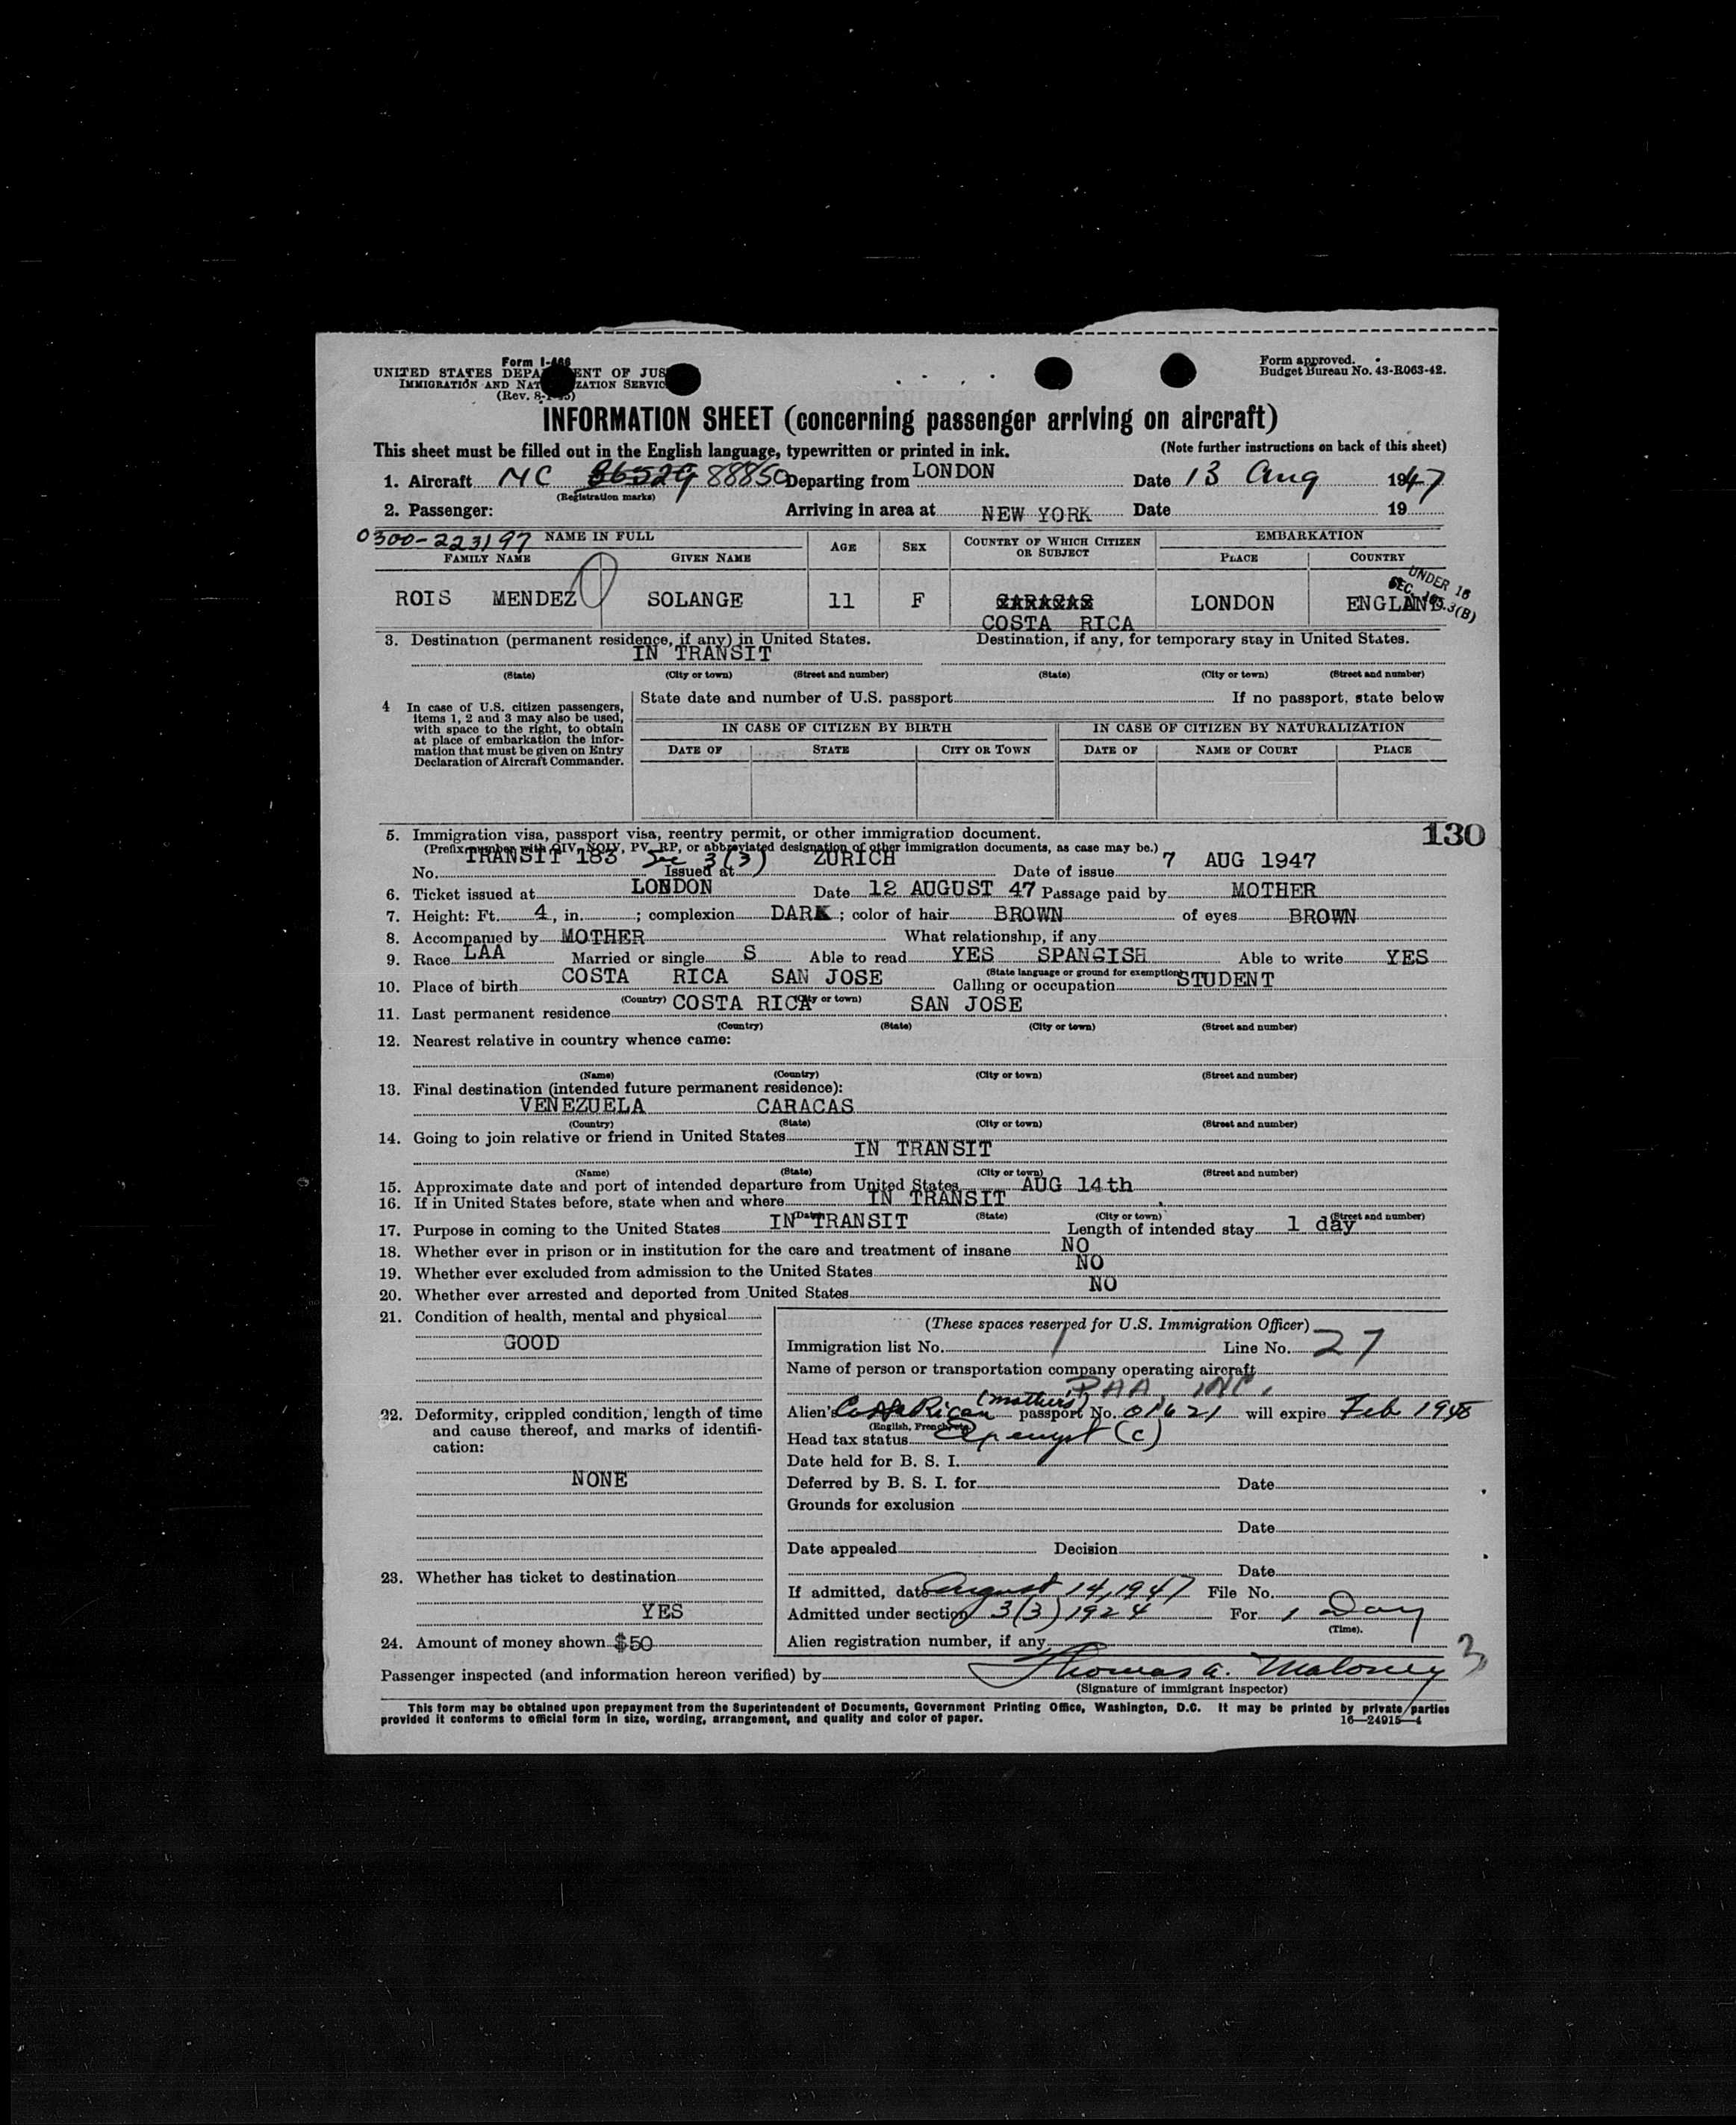 Form I-466
UNITED STATES DEPA ENT OF JUS
IMMIGRATION AND NAT ZATION SERVIC
(Rev. 8-
Form approved.
Budget Bureau No. 43-R063-42.
INFORMATION SHEET (concerning passenger arriving on aircraft)
This sheet must be filled out in the English language, typewritten or printed in ink. (Note further instructions on back of this sheet)
1. Aircraft NC 86529 88850 Departing from LONDON Date 13 Aug 1947
(Registration marks)
2. Passenger: Arriving in area at NEW YORK Date 19
0300-223197 NAME IN FULL AGE SEX COUNTRY OF WHICH CITIZEN OR SUBJECT EMBARKATION
FAMILY NAME GIVEN NAME PLACE COUNTRY
UNDER 16
SEC. 3(B)
ROIS MENDEZ SOLANGE 11 F CARACAS LONDON ENGLAND
COSTA RICA
3. Destination (permanent residence, if any) in United States. Destination, if any, for temporary stay in United States.
IN TRANSIT
(State) (City or town) (Street and number) (State) (City or town) (Street and number)
4 In case of U.S. citizen passengers, items 1, 2 and 3 may also be used, with space to the right, to obtain at place of embarkation the information that must be given on Entry Declaration of Aircraft Commander.
State date and number of U.S. passport If no passport, state below
IN CASE OF CITIZEN BY BIRTH IN CASE OF CITIZEN BY NATURALIZATION
DATE OF STATE CITY OR TOWN DATE OF NAME OF COURT PLACE
5. Immigration visa, passport visa, reentry permit, or other immigration document. 130
(Prefix number with QIV, NQIV, PV, RP, or abbreviated designation of other immigration documents, as case may be.)
No. TRANSIT 183 Sec 3(3) Issued at ZURICH Date of issue 7 AUG 1947
6. Ticket issued at LONDON Date 12 AUGUST 47 Passage paid by MOTHER
7. Height: Ft. 4, in. ; complexion DARK ; color of hair BROWN of eyes BROWN
8. Accompanied by MOTHER What relationship, if any
9. Race LAA Married or single S Able to read YES SPANGISH Able to write YES
(State language or ground for exemption)
10. Place of birth COSTA RICA SAN JOSE Calling or occupation STUDENT
(Country) (City or town)
11. Last permanent residence COSTA RICA SAN JOSE
(Country) (State) (City or town) (Street and number)
12. Nearest relative in country whence came:
(Name) (Country) (City or town) (Street and number)
13. Final destination (intended future permanent residence):
VENEZUELA CARACAS
(Country) (State) (City or town) (Street and number)
14. Going to join relative or friend in United States
IN TRANSIT
(Name) (State) (City or town) (Street and number)
15. Approximate date and port of intended departure from United States AUG 14th
16. If in United States before, state when and where IN TRANSIT
(Date) (State) (City or town) (Street and number)
17. Purpose in coming to the United States IN TRANSIT Length of intended stay 1 day
18. Whether ever in prison or in institution for the care and treatment of insane NO
19. Whether ever excluded from admission to the United States NO
20. Whether ever arrested and deported from United States NO
21. Condition of health, mental and physical
GOOD
22. Deformity, crippled condition, length of time and cause thereof, and marks of identification:
NONE
23. Whether has ticket to destination
YES
24. Amount of money shown $50
(These spaces reserved for U.S. Immigration Officer)
Immigration list No. 1 Line No. 27
Name of person or transportation company operating aircraft
PAA, INC.
Alien's Costa Rican (mothers) passport No. 01621 will expire Feb 1948
(English, French, etc.)
Head tax status Exempt (c)
Date held for B. S. I.
Deferred by B. S. I. for Date
Grounds for exclusion
Date
Date appealed Decision
Date
If admitted, date August 14, 1947 File No.
Admitted under section 3(3) 1924 For 1 Day
(Time).
Alien registration number, if any
3
Passenger inspected (and information hereon verified) by Thomas A. Maloney
(Signature of immigrant inspector)
This form may be obtained upon prepayment from the Superintendent of Documents, Government Printing Office, Washington, D.C. It may be printed by private parties
provided it conforms to official form in size, wording, arrangement, and quality and color of paper. 16—24915-4